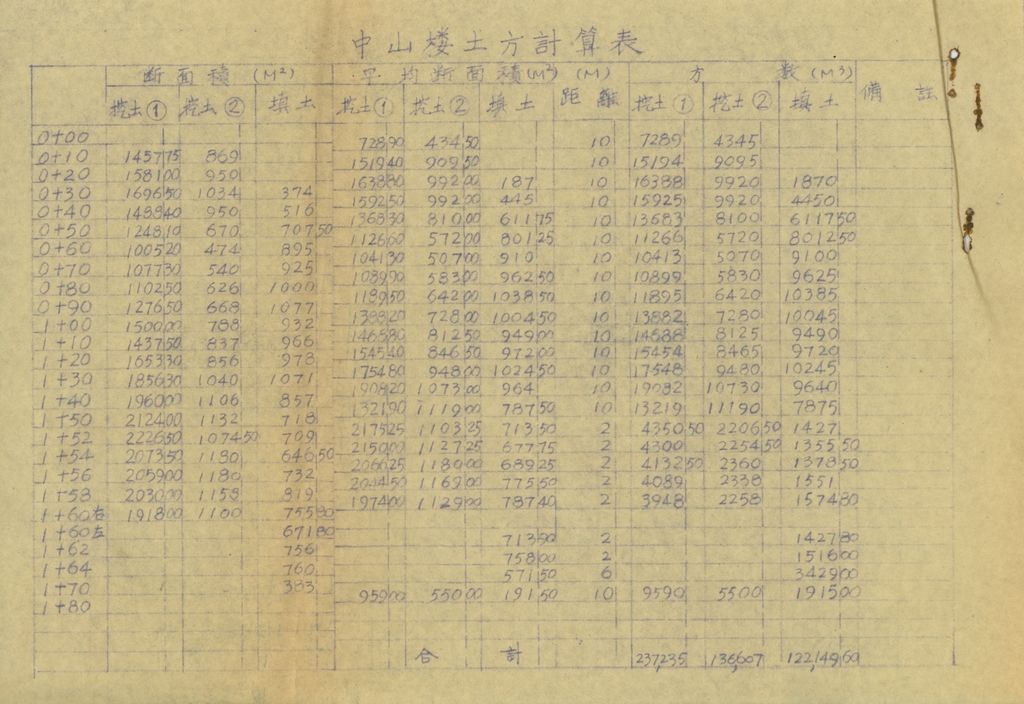 中山楼土方計算表
断面積 (M²) 平均断面積(M²) (M) 方数(M³)
挖土① 挖土② 填土 挖土① 挖土② 填土 距離 挖土① 挖土② 填土 備註
0+00
728 90 434 50 10 7289 4345
0+10 1457 75 869
1519 40 909 50 10 15194 9095
0+20 1581 00 950
1638 80 992 00 187 10 16388 9920 1870
0+30 1696 50 1034 374
1592 50 992 00 445 10 15925 9920 4450
0+40 1488 40 950 516
1368 30 810 00 611 75 10 13683 8100 6117 50
0+50 1248 10 670 707 50
1126 60 572 00 801 25 10 11266 5720 8012 50
0+60 1005 20 474 895
1041 30 507 00 910 10 10413 5070 9100
0+70 1077 30 540 925
1089 90 583 00 962 50 10 10899 5830 9625
0+80 1102 50 626 1000
1189 50 642 00 1038 50 10 11895 6420 10385
0+90 1276 50 668 1077
1388 20 728 00 1004 50 10 13882 7280 10045
1+00 1500 00 788 932
1465 80 812 50 949 00 10 14688 8125 9490
1+10 1437 50 837 966
1545 40 846 50 972 00 10 15454 8465 9720
1+20 1653 30 856 978
1754 80 948 00 1024 50 10 17548 9480 10245
1+30 1856 30 1040 1071
1908 20 1073 00 964 10 19082 10730 9640
1+40 1960 00 1106 857
1321 90 1119 00 787 50 10 13219 11190 7875
1+50 2124 00 1132 718
2175 25 1103 25 713 50 2 4350 50 2206 50 1427
1+52 2226 50 1074 50 709
2150 00 1127 25 677 75 2 4300 2254 50 1355 50
1+54 2073 50 1180 646 50
2066 25 1180 00 689 25 2 4132 50 2360 1378 50
1+56 2059 00 1180 732
2044 50 1169 00 775 50 2 4089 2338 1551
1+58 2030 00 1158 819
1974 00 1129 00 787 40 2 3948 2258 1574 80
1+60右 1918 00 1100 755 80
1+60左 671 80
713 90 2 1427 80
1+62 756
758 00 2 1516 00
1+64 760
571 50 6 3429 00
1+70 383
959 00 550 00 191 50 10 9590 5500 1915 00
1+80
合計 237,235 136,607 122,149 60